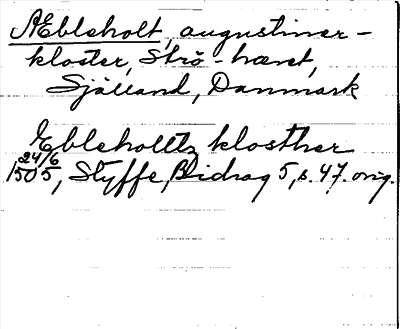 Æbleholt, augustiner-
kloster, Strö-haret,
Sjölland, Danmark
Ebleholltz klosther
24/6
1505, Styffe, Bidrag 5, s. 47. orig.